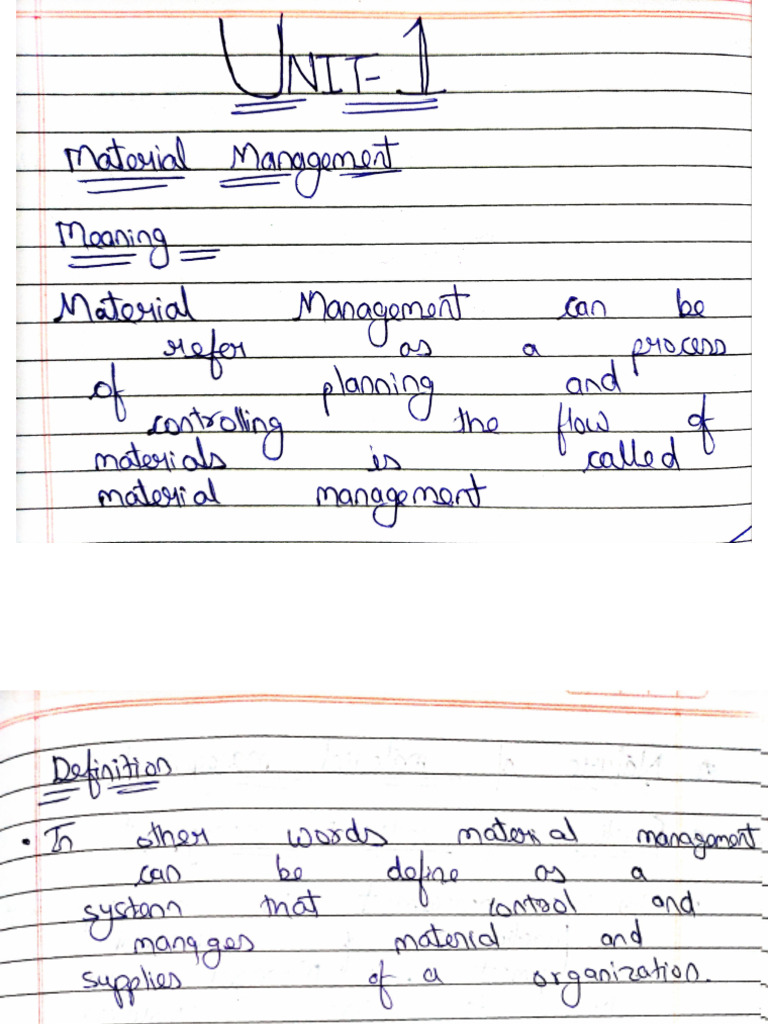 UNIT-1
Material Management
Meaning
Material Management can be
refer as a process
of planning and
controlling the flow of
materials is called
material management
Definition
• In other words material management
can be define as a
system that control and
manages material and
supplies of a organization.